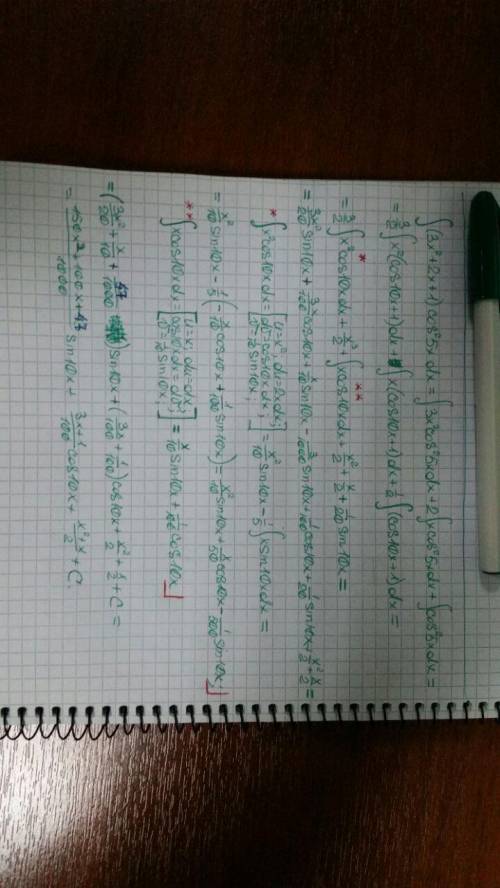 ∫(3x²+2x+1)cos²5xdx = ∫3x²cos²5xdx + 2∫xcos²5xdx + ∫cos²5xdx =
= 3/2 ∫x²(cos10x+1)dx + ∫x(cos10x+1)dx + 1/2 ∫(cos10x+1)dx =
= 3/2 ∫* x²cos10xdx + x³/2 + ∫** xcos10xdx + x²/2 + x/2 + 1/20 sin10x =
= 3x²/20 sin10x + 3x/100 cos10x + x/10 sin10x - 3/1000 sin10x + 1/100 cos10x + 1/20 sin10x + x²/2 + x/2 =
* ∫x²cos10xdx = [u=x² du=2xdx; dv=cos10xdx; v=1/10 sin10x;] = x²/10 sin10x - 1/5 ∫xsin10xdx =
= x²/10 sin10x - 1/5 (-x/10 cos10x + 1/100 sin10x) = x²/10 sin10x + x/50 cos10x - 1/500 sin10x
** ∫xcos10xdx = [u=x; du=dx; cos10xdx=dv; v=1/10 sin10x;] = x/10 sin10x + 1/100 cos10x
= (3x²/20 + x/10 + 47/1000) sin10x + (3x/100 + 1/100) cos10x + x²/2 + x/2 + C =
= 150x²+100x+47/1000 sin10x + 3x+1/100 cos10x + x²+x/2 + C.